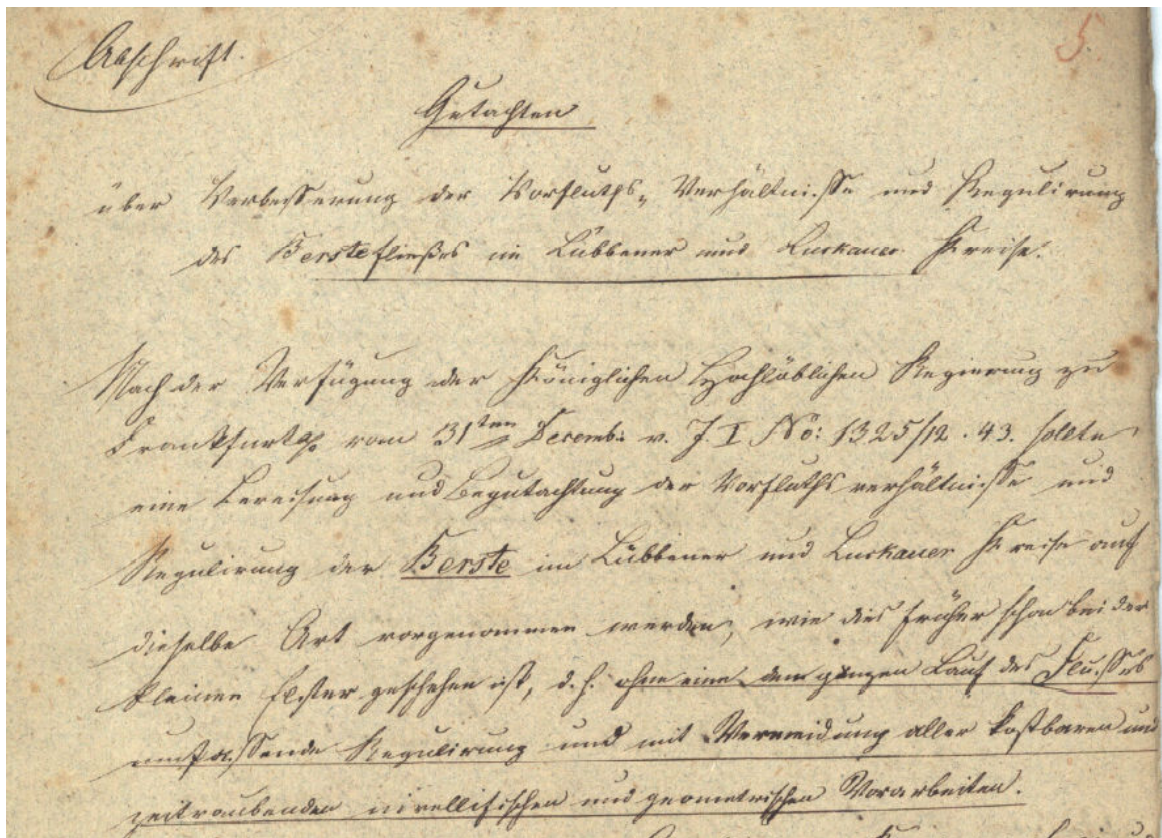 Abschrift.
5.
Gutachten
über Verbesserung der Vorfluths-Verhältnisse und Regulirung
des Berstefließes im Lübbener und Luckauer Kreise.
Nach der Verfügung der Königlichen Hochlöblichen Regierung zu
Frankfurt a/o vom 31ten Decemb: v. J. I No: 1325/12. 43. sollte
eine Bereisung und Begutachtung der Vorfluthsverhältnisse und
Regulirung der Berste im Lübbener und Luckauer Kreise auf
dieselbe Art vorgenommen werden, wie dies früher schon bei der
kleinen Elster geschehen ist, d. h. ohne eine den ganzen Lauf des Flusses
umfassende Regulirung und mit Vermeidung aller kostbaren und
zeitraubenden nivellitischen und geometrischen Vorarbeiten.